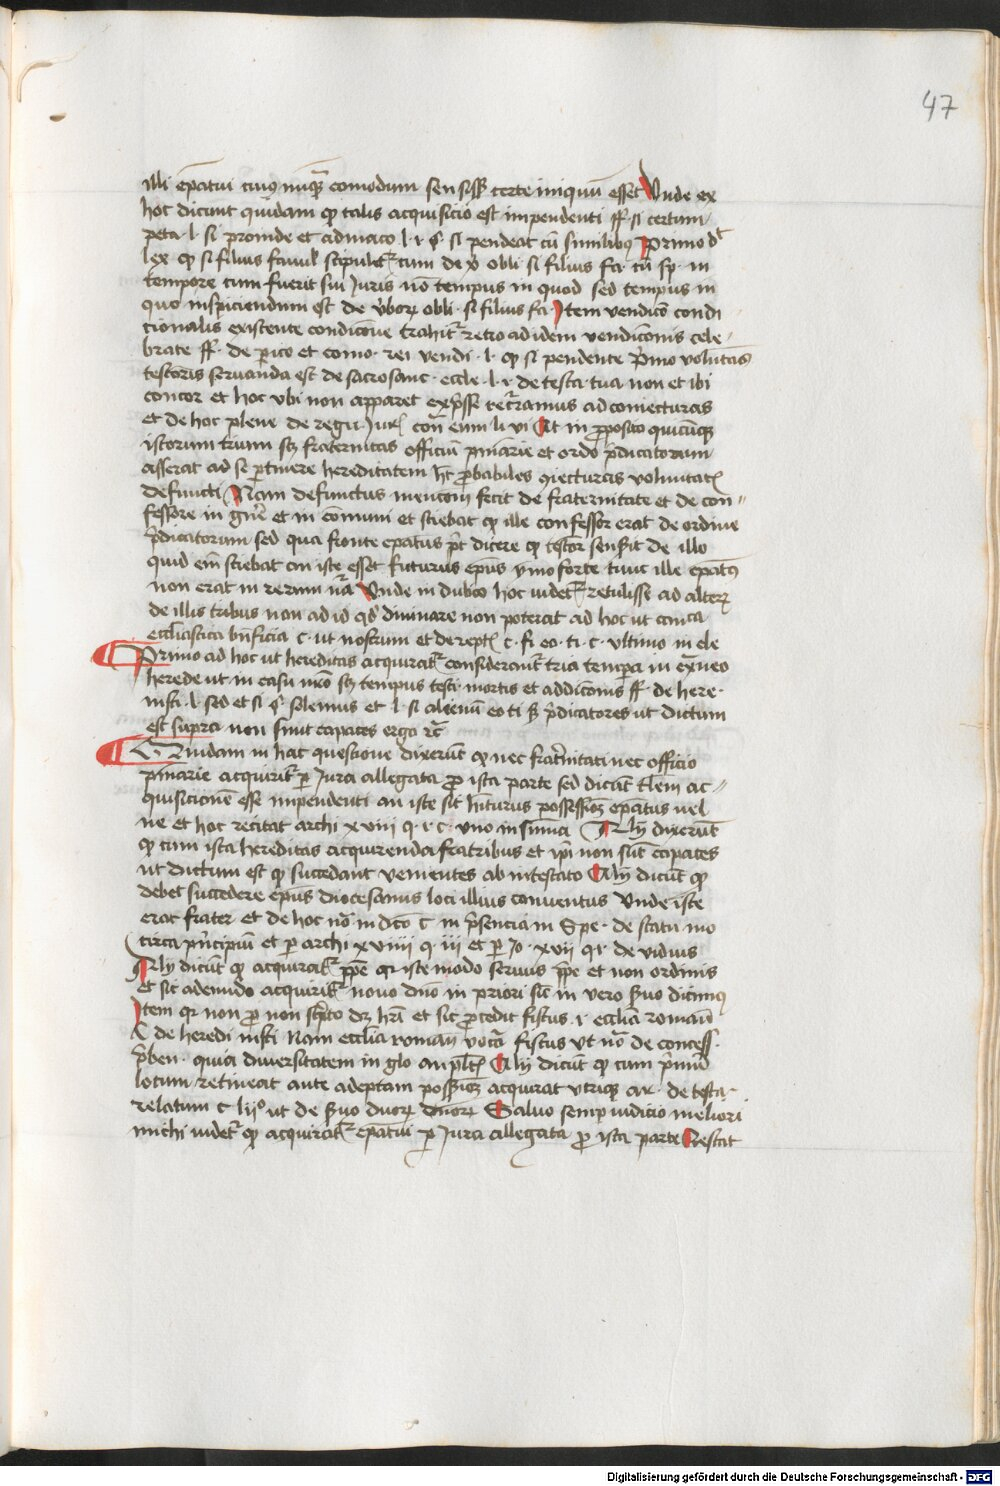 47
illi epatui cuiꝰ nūqꝫ comodum sensisset certe iniquū esset Unde ex
hoc dicunt quidam qp talis acquisicio est impendenti ff. si certum
peta. l. si proinde et ad maco l. 1 §. si pendeat cū similibꝰ Primo d
lex qp si filius famil stipulet᷑ cum de v̄ obli si filius fa. cū sp. in
tempore cum fuerit sui Juris nō tempus in quod sed tempus in
quo inspiciendum est de v̄borꝝ obli. si filius fa. Item vendicō condi
cionalis existente condicione trahit᷑ retro ad idem vendicōnis cele-
brate ff. de p̲ico et como. rei vendi. l. qp si pendente Primo volūtas
testoris seruanda est de sacrosanc. eccle. l. 1. de testa. tua non et ibi
concor et hoc vbi non apparet exp̄sse recurramus ad coniecturas
et de hoc plene de regu. Jur. con eum li. vi At in p̲posito quicūqꝫ
istorum trium scꝫ fraternitas officiū pīnarie et ordo p̄dicatorum
asserat ad se p̲tinere hereditatem hꝫ p̲babiles 9iecturas voluntatꝭ
defuncti Nam defunctus mencōm fecit de fraternitate et de con=
fessore in gn̄e et in cōmuni et sciebat qp ille confessor erat de ordine
p̄dicatorum sed qua fronte epatus pōt dicere qp testor senserit de illo
quid em̄ sciebat an iste esset futurus ep̄us ymo forte tunc ille epatꝰ
non erat in rerum nā Unde in dubio hoc videt᷑ retulisse ad alterꝝ
de illis tribus non ad id qd diuinare non poterat ad hoc ut
ecclesiastica bn̄ficia c. ut nostrum et de rept c. fi eo. ti. c. vltimo in cle
Primo ad hoc ut hereditas acquirat᷑ considerant᷑ tria tempora in exn̄eo
herede ut in casu nr̄o scꝫ tempus testi. mortis et addicōnis ff. de here.
insti. l. sed et si §. solemus et l. si alienū eo ti sꝫ p̄dicatores ut dictum
est supra non sunt capaces ergo rc̄
Quidam in hac questione dixerūt qp nec frat̲nitati nec officio
pīnarie acquirit᷑ p̲ Jura allegata p̲ ista parte sed dicūt talem ac-
quisicionem esse impendenti an iste sit hīturus possessiōꝫ epatus uel
ne et hoc recitat archi xviii q. 1 c. vno in summa Alij dixerūt
qp cum ista hereditas acquirenda fratribus et ip̄i non sūt capaces
ut dictum est qp succedant venientes ab intestato Alij dicūt qp
debet succedere ep̄us diocesanus loci illius conuentus Unde iste
erat frater et de hoc nō in dc̄o c. in p̄sencia in Spe. de statu mo
circa p̄ncipiū et p̲ archi xviiii q. iii et p̲ Jo. xvii q. 1. de viduis
Alij dicūt qp acquirat᷑ pp̄e qr iste modo seruus pp̄e et non ordinis
et sic ademdo acquirit᷑ nouo dn̄o in priori sūt in vero seruo dicimꝰ
Item qr non p̲ non scripto dꝫ hr̄i et sic p̲cedit fiscus .1. ecclīa romana
C de heredi insti. Nam ecclīa romana vocat᷑ fiscus ut nō de concess.
p̄ben. quia diuersitatem in glo an plꝭ Alij dicūt qp cum p̄mū
locum retineat ante adeptam possessiōꝫ acquirat vtriqꝫ ar. de testa.
relatum c. lii⁰ ut de seruo duorꝝ dn̄orꝝ Saluo semp iudicio meliori
michi videt᷑ qp acquirat᷑ epatui p̲ Jura allegata p̲ ista parte Restat
Digitalisierung gefördert durch die Deutsche Forschungsgemeinschaft - DFG